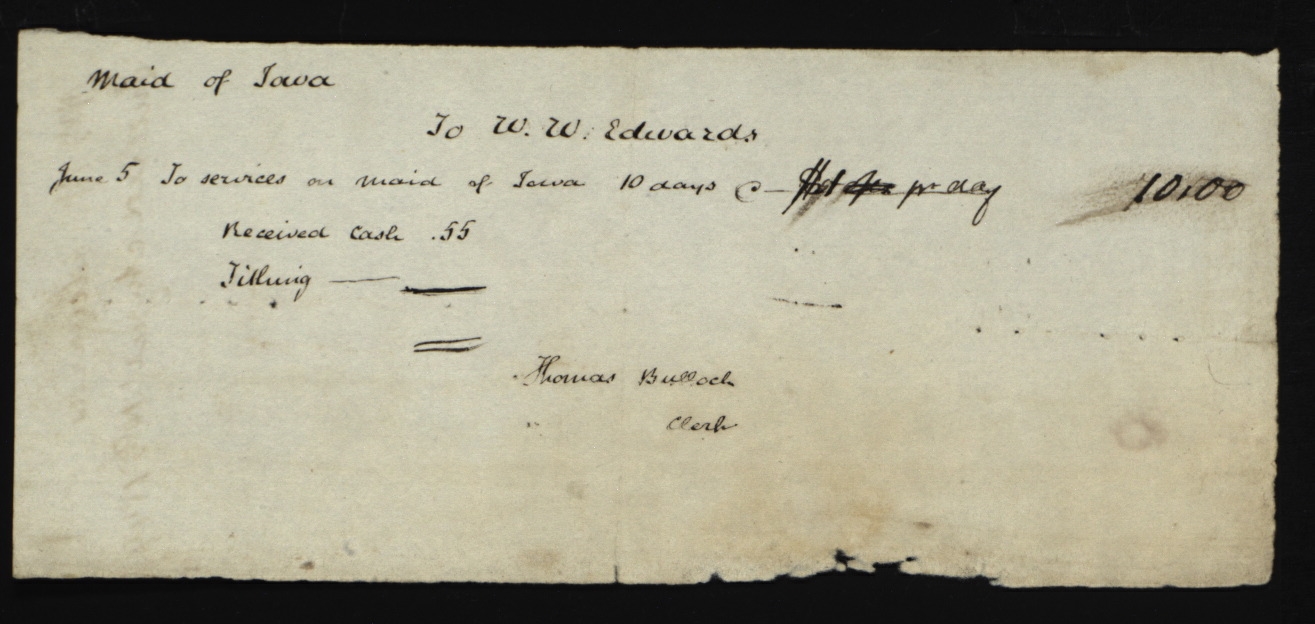 Maid of Iowa
To W. W. Edwards
June 5 To services on Maid of Iowa 10 days @ — $1 pr day 10,00
Received Cash .55
Tithing —
Thomas Bullock
Clerk